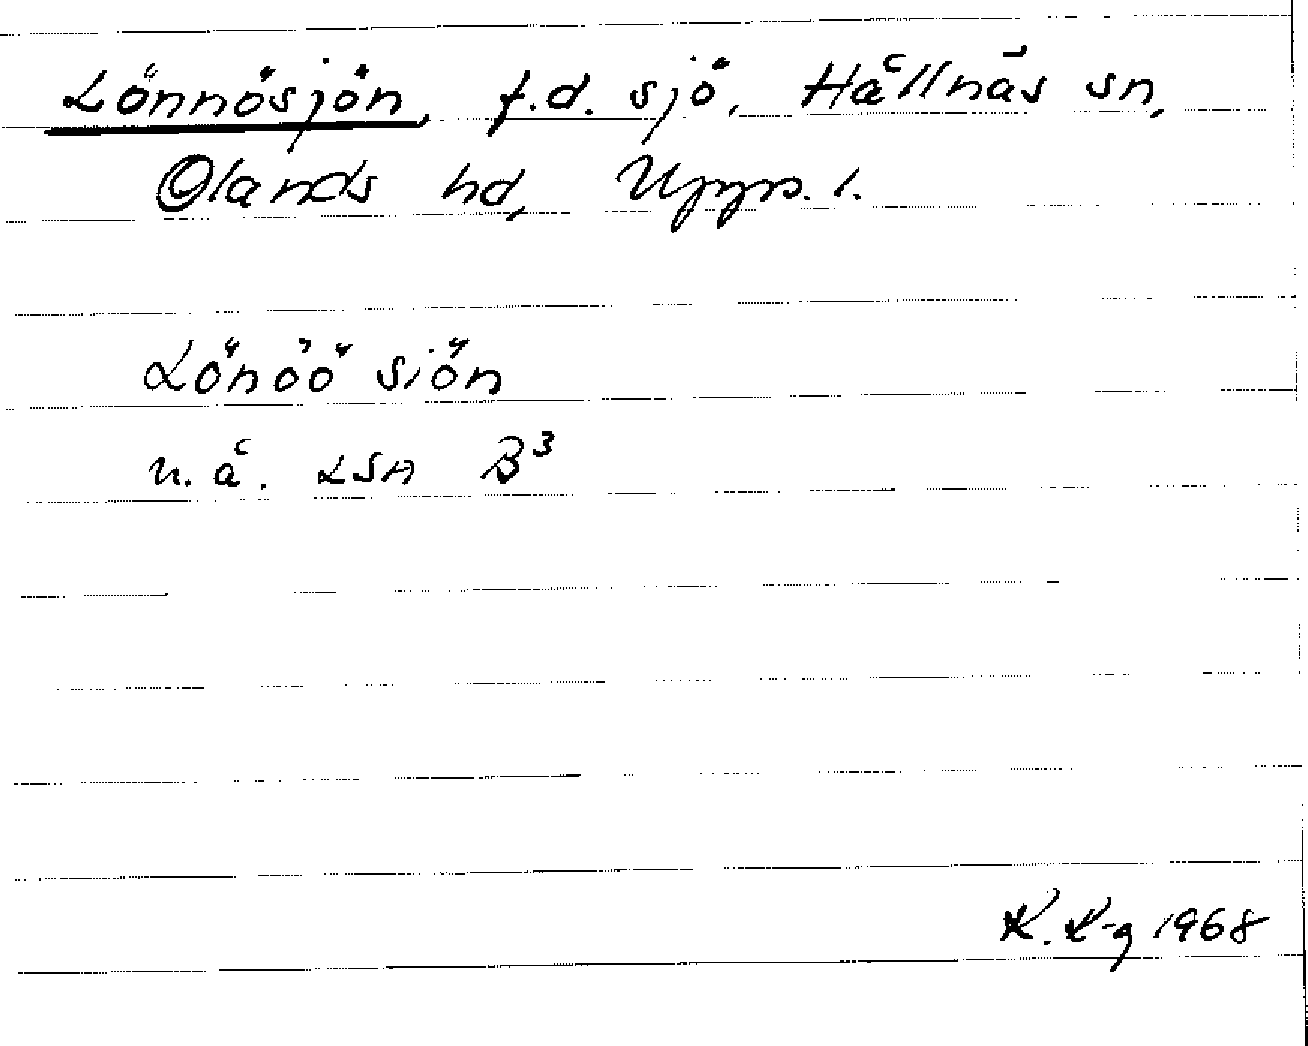 Lönnösjön, f.d. sjö, Hållnäs sn,
Olands hd, Upps. l.
Lönöö siön
u. å. LSA B³
K. K-g 1968